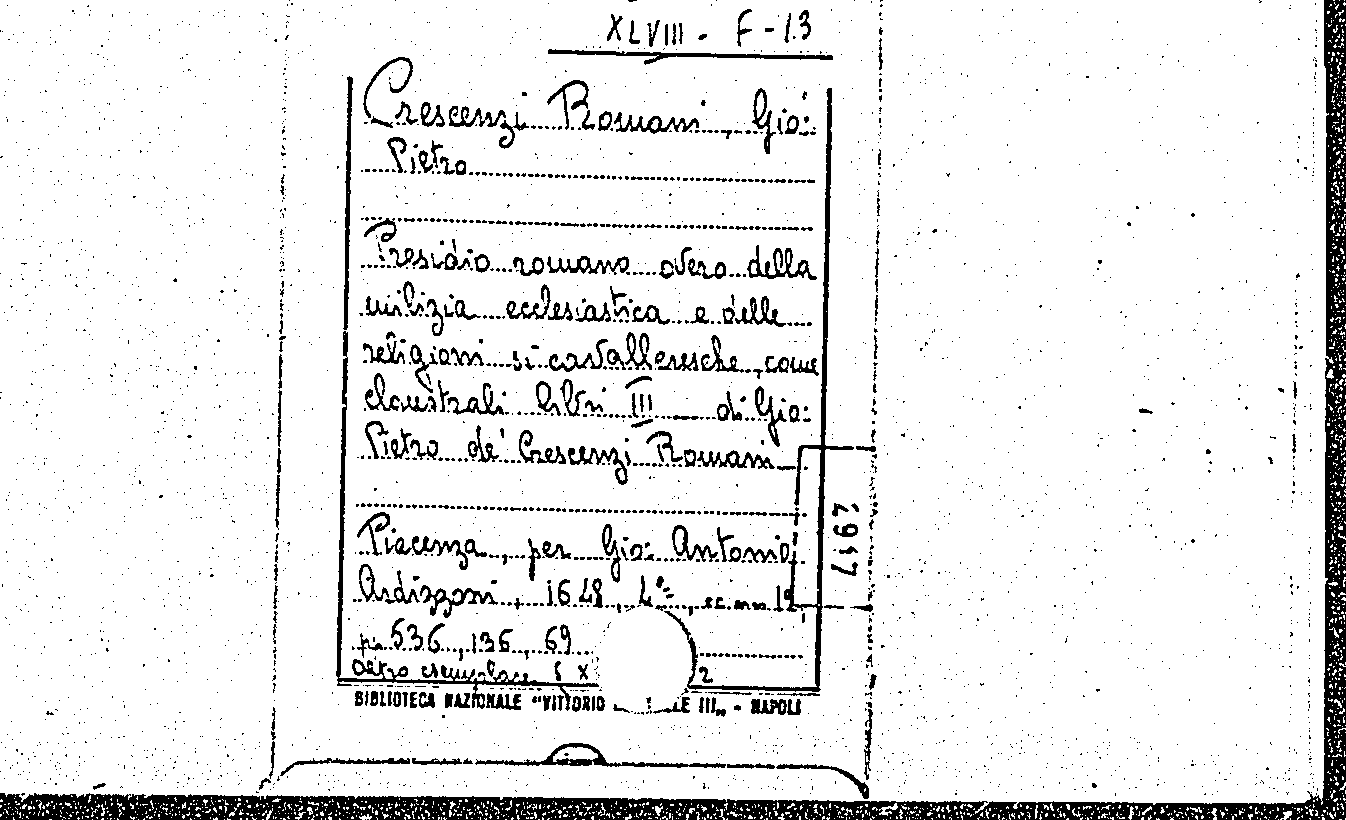 XLVIII - F - 13
Crescenzi Romani, Gio:
Pietro
Presidio romano overo della
milizia ecclesiastica e delle
religioni sì cavalleresche, come
claustrali libri III — di Gio:
Pietro de' Crescenzi Romani
Piacenza, per Gio: Antonio
Ardizzoni, 1648, 4º,
p. 536, 136, 69
Altro esemplare § X 2
BIBLIOTECA NAZIONALE "VITTORIO LE III„ - NAPOLI
2917